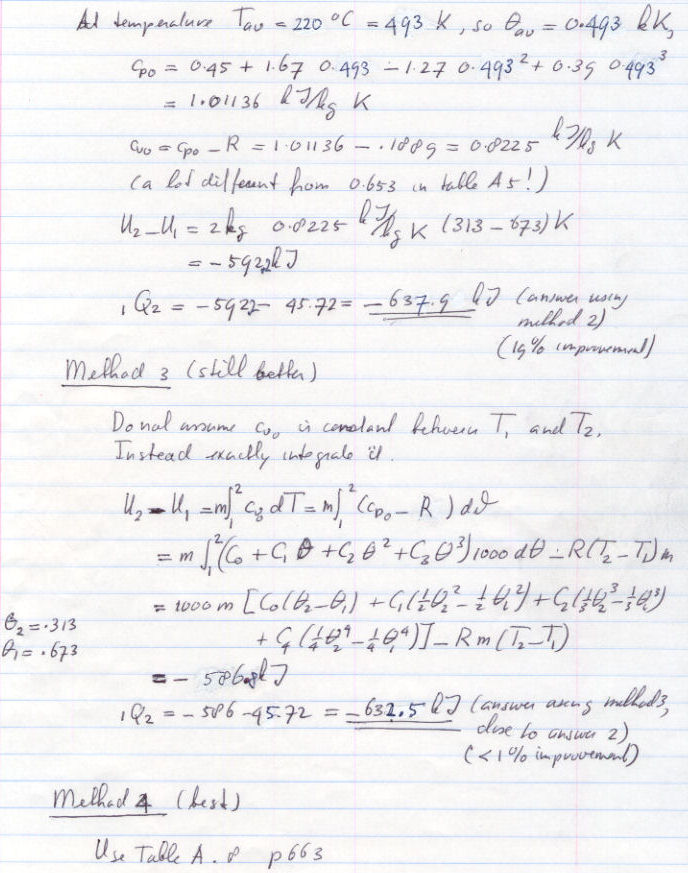 At temperature Tav = 220 °C = 493 K, so θav = 0.493 kK,
cpo = 0.45 + 1.67 0.493 - 1.27 0.493² + 0.39 0.493³
= 1.01136 kJ/kg K
cvo = cpo - R = 1.01136 - .1889 = 0.8225 kJ/kg K
(a lot different from 0.653 in table A5!)
U2 - U1 = 2 kg 0.8225 kJ/kg K (313 - 673) K
= - 592.2 kJ
1Q2 = - 592.2 - 45.72 = - 637.9 kJ (answer using
method 2)
(19% improvement)
Method 3 (still better)
Do not assume cvo is constant between T1 and T2.
Instead exactly integrate it.
U2 - U1 = m∫₁² cvo dT = m∫₁² (cpo - R) dϑ
= m ∫₁² (C0 + C1 θ + C2 θ² + C3 θ³) 1000 dθ - R(T2 - T1) m
= 1000 m [C0(θ2 - θ1) + C1(½θ2² - ½θ1²) + C2(⅓θ2³ - ⅓θ1³)
θ2 = .313
+ C4 (¼θ2⁴ - ¼θ1⁴)] - R m (T2 - T1)
θ1 = .673
= - 586.8 kJ
1Q2 = - 586 - 45.72 = - 632.5 kJ (answer using method 3,
close to answer 2)
(< 1% improvement)
Method 4 (best)
Use Table A.8 p663